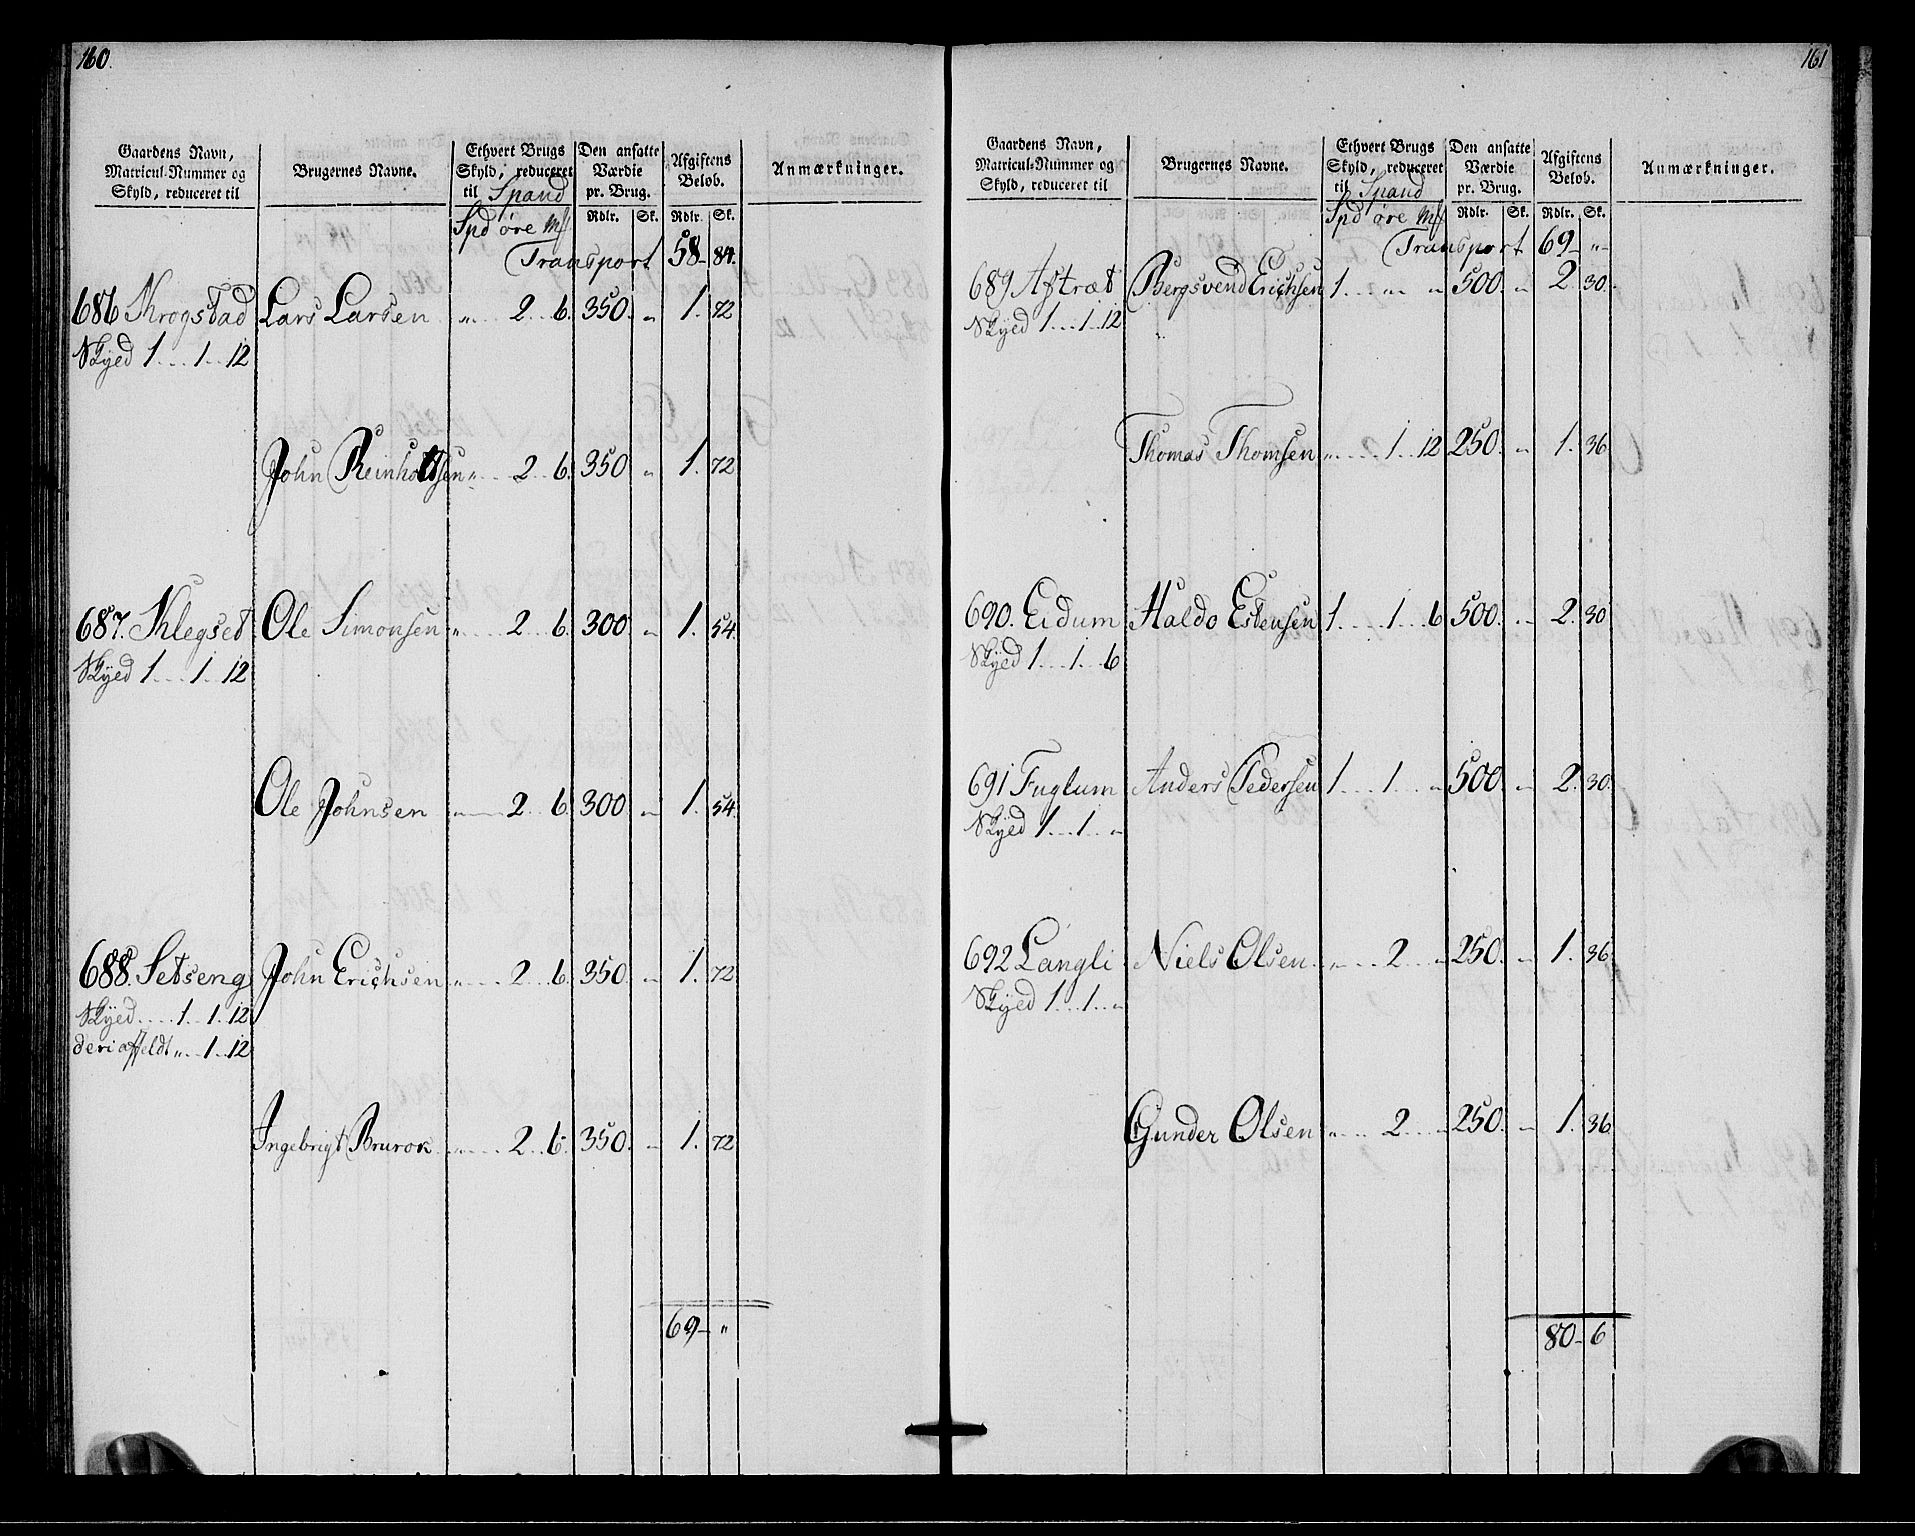 160.
Gaardens Navn, Matricul-Nummer og Skyld, reduceret til | Brugernes Navne. | Ethvert Brugs Skyld, reduceret til Spand | Den ansatte Værdie pr. Brug. | Afgiftens Beløb. | Anmærkninger.
Spd øre Mk | Rdlr. | Sk. | Rdlr. | Sk.
Transport 58 84.
686 Krogstad Lars Larsen „ 2 6. 350. „ 1. 72
Skyed 1 1 12
John Reinholtsen „ 2 6. 350 „ 1. 72
687. Klegset Ole Simonsen „ 2 6. 300 „ 1. 54
Skyed 1 1 12
Ole Johnsen „ 2 6. 300 „ 1. 54
688. Setseng John Erichsen „ 2 6. 350. „ 1. 72
Skyed 1 1 12
deri øffeldt „ 1 12
Ingebrigt Brurok „ 2 6. 350. „ 1. 72
69 „
161
Gaardens Navn, Matricul-Nummer og Skyld, reduceret til | Brugernes Navne. | Ethvert Brugs Skyld, reduceret til Spand | Den ansatte Værdie pr. Brug. | Afgiftens Beløb. | Anmærkninger.
Spd øre Mk | Rdlr. | Sk. | Rdlr. | Sk.
Transport 69 „
689 Aftræt Bergsvend Erichsen 1 „ „ 500. „ 2. 30.
Skyed 1 1 12
Thomas Thomsen „ 1 12 250. „ 1. 36
690. Eidum Haldo Estensen 1 1 6 500. „ 2. 30
Skyed 1 1 6
691 Fuglum Anders Pedersen 1 1 „ 500. „ 2. 30.
Skyed 1 1 „
692 Langli Niels Olsen „ 2 „ 250. „ 1. 36
Skyed 1 1 „
Gunder Olsen „ 2 „ 250. „ 1. 36
80 6